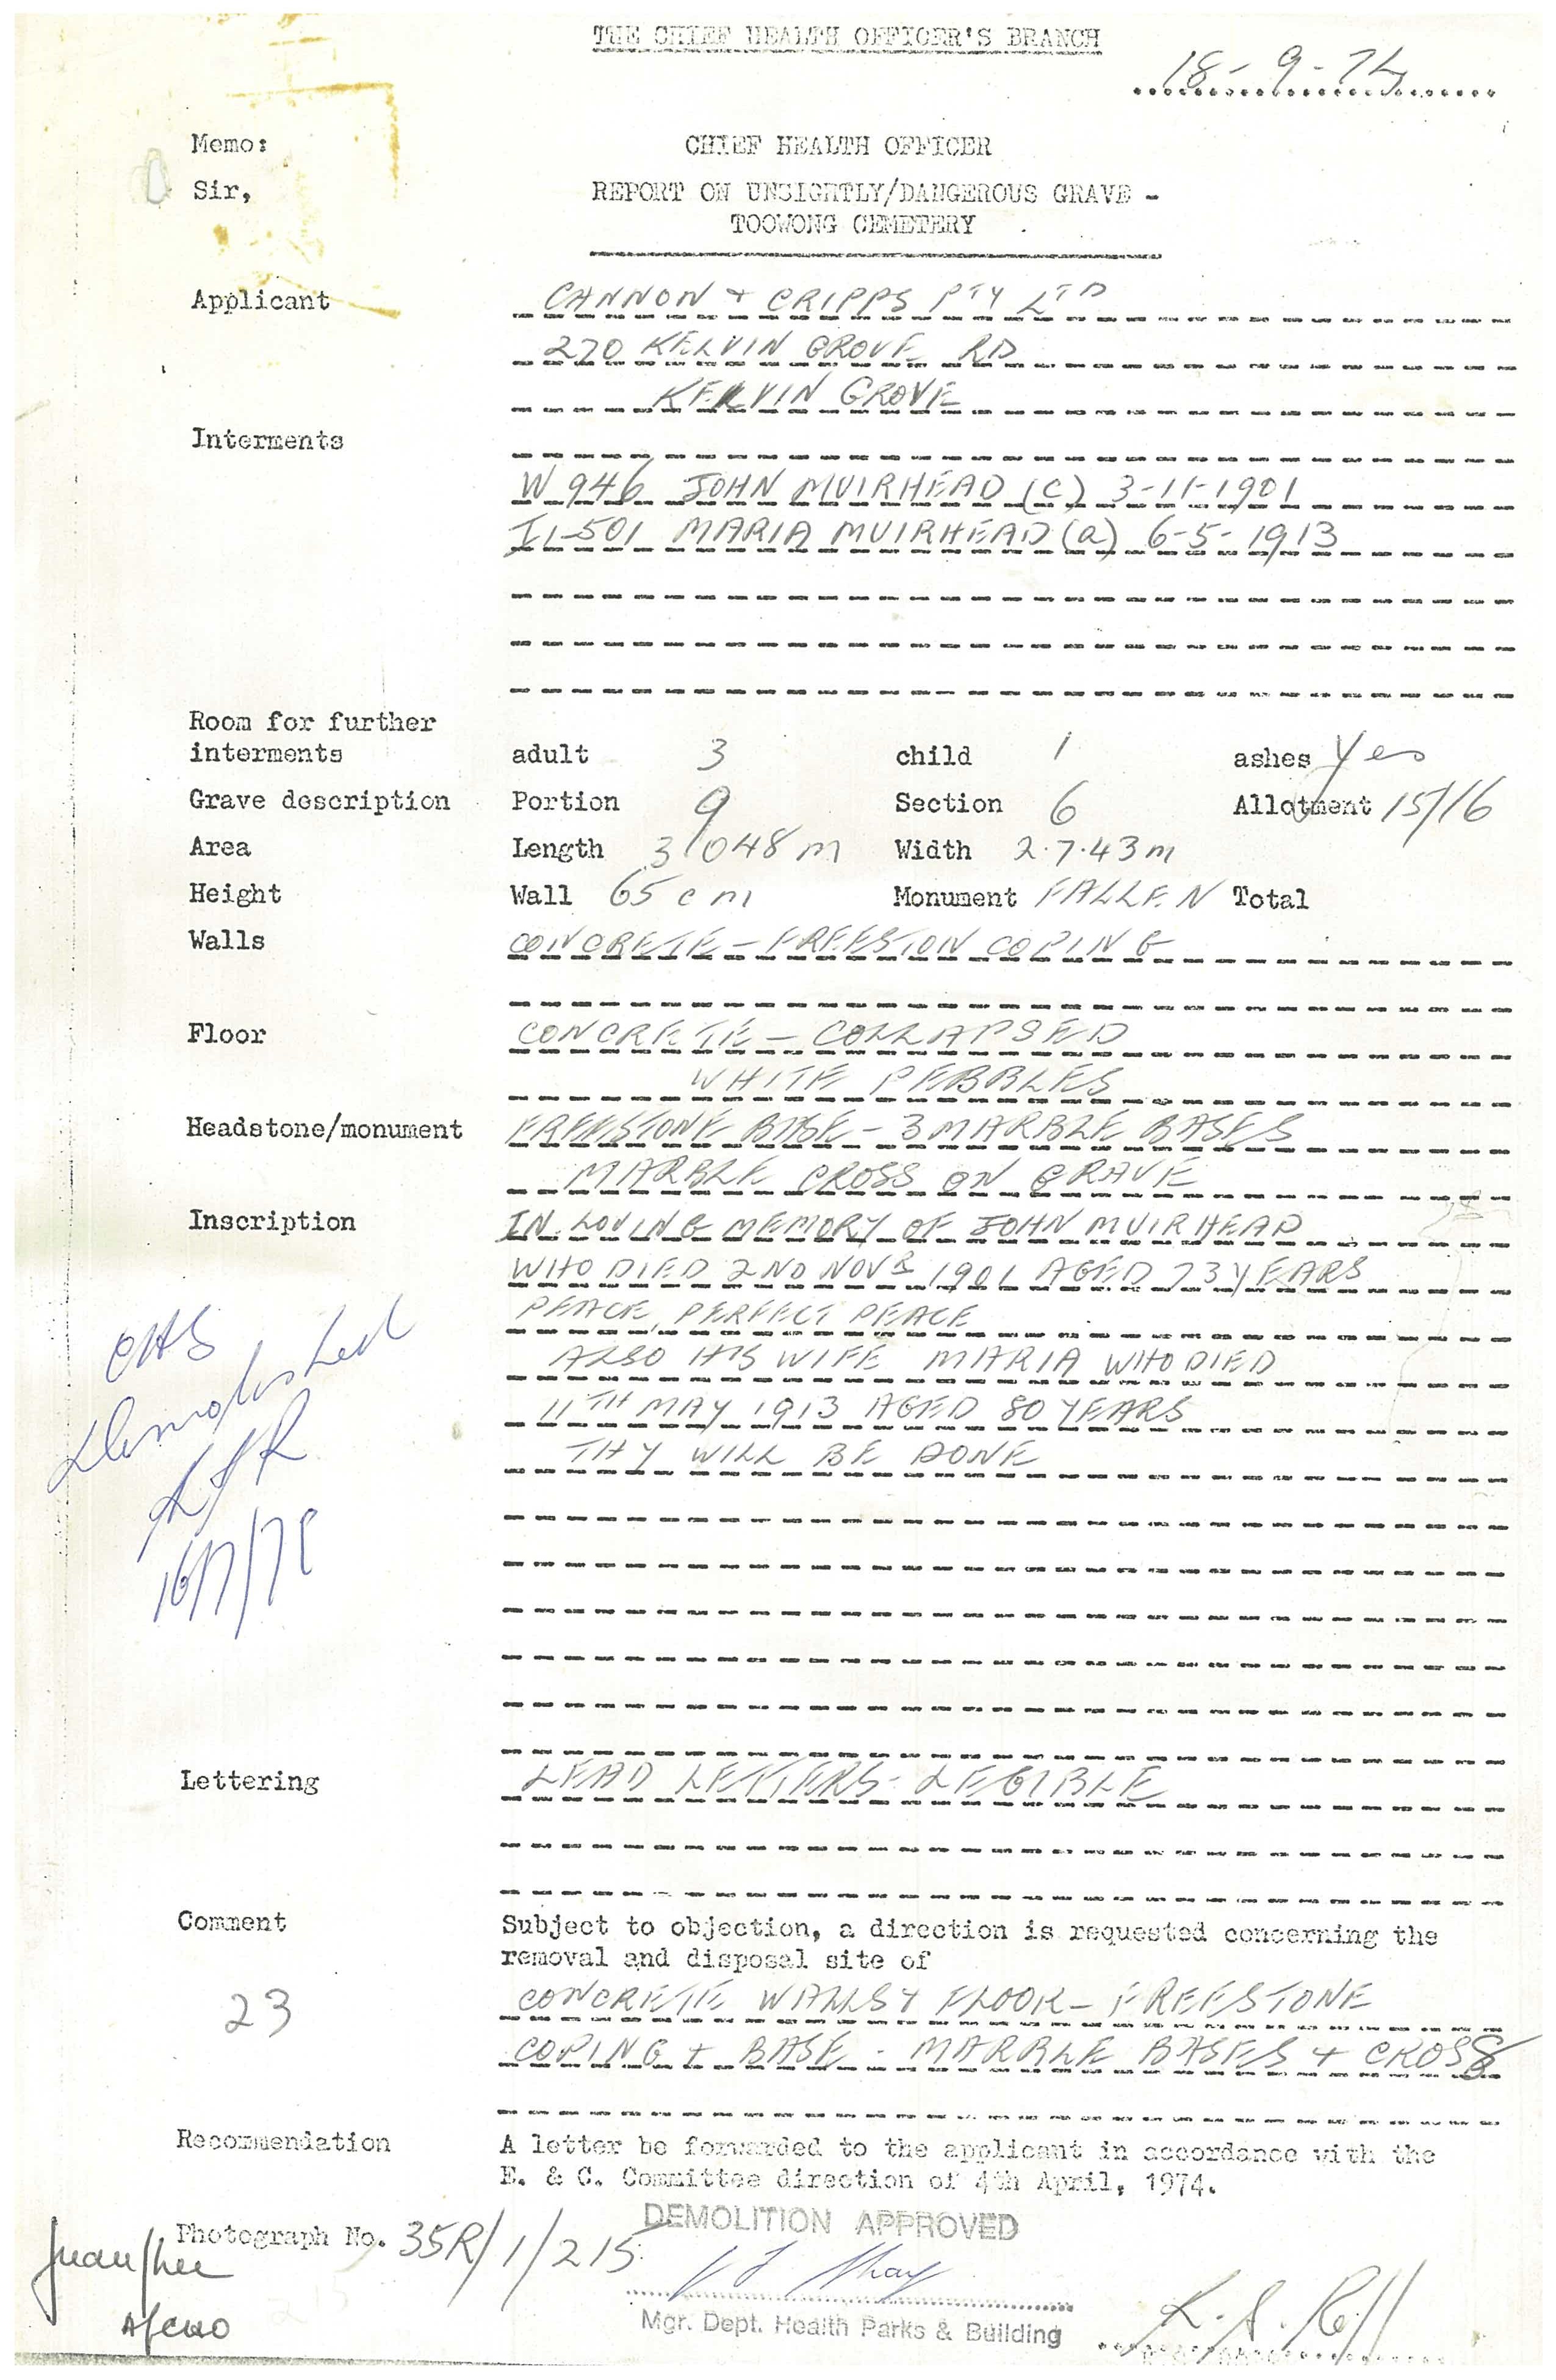 THE CHIEF HEALTH OFFICER'S BRANCH
18-9-74
Memo:
CHIEF HEALTH OFFICER
Sir,
REPORT ON UNSIGHTLY/DANGEROUS GRAVE -
TOOWONG CEMETERY
Applicant CANNON + CRIPPS PTY LTD
270 KELVIN GROVE RD
KELVIN GROVE
Interments
W 946 JOHN MUIRHEAD (C) 3-11-1901
MARIA MUIRHEAD (a) 6-5-1913
Room for further
interments adult 3 child 1 ashes Yes
Grave description Portion 9 Section 6 Allotment 15/16
Area Length 3.048 m Width 2.7.43 m
Height Wall 65 cm Monument FALLEN Total
Walls CONCRETE - FREESTON COPING
Floor CONCRETE - COLLAPSED
WHITE PEBBLES
Headstone/monument FREESTONE BASE - 3 MARBLE BASES
MARBLE CROSS ON GRAVE
Inscription IN LOVING MEMORY OF JOHN MUIRHEAD
WHO DIED 2ND NOVR 1901 AGED 73 YEARS
PEACE, PERFECT PEACE
ALSO HIS WIFE MARIA WHO DIED
11TH MAY 1913 AGED 80 YEARS
THY WILL BE DONE
Demolished
Lettering LEAD LETTERS - LEGIBLE
Comment Subject to objection, a direction is requested concerning the
removal and disposal site of
23
CONCRETE WALLS + FLOOR - FREESTONE
COPING + BASE - MARBLE BASES + CROSS
Recommendation A letter be forwarded to the applicant in accordance with the
E. & C. Committee direction of 4th April, 1974.
DEMOLITION APPROVED
Photograph No. 35R/1/215
Mgr. Dept. Health Parks & Building